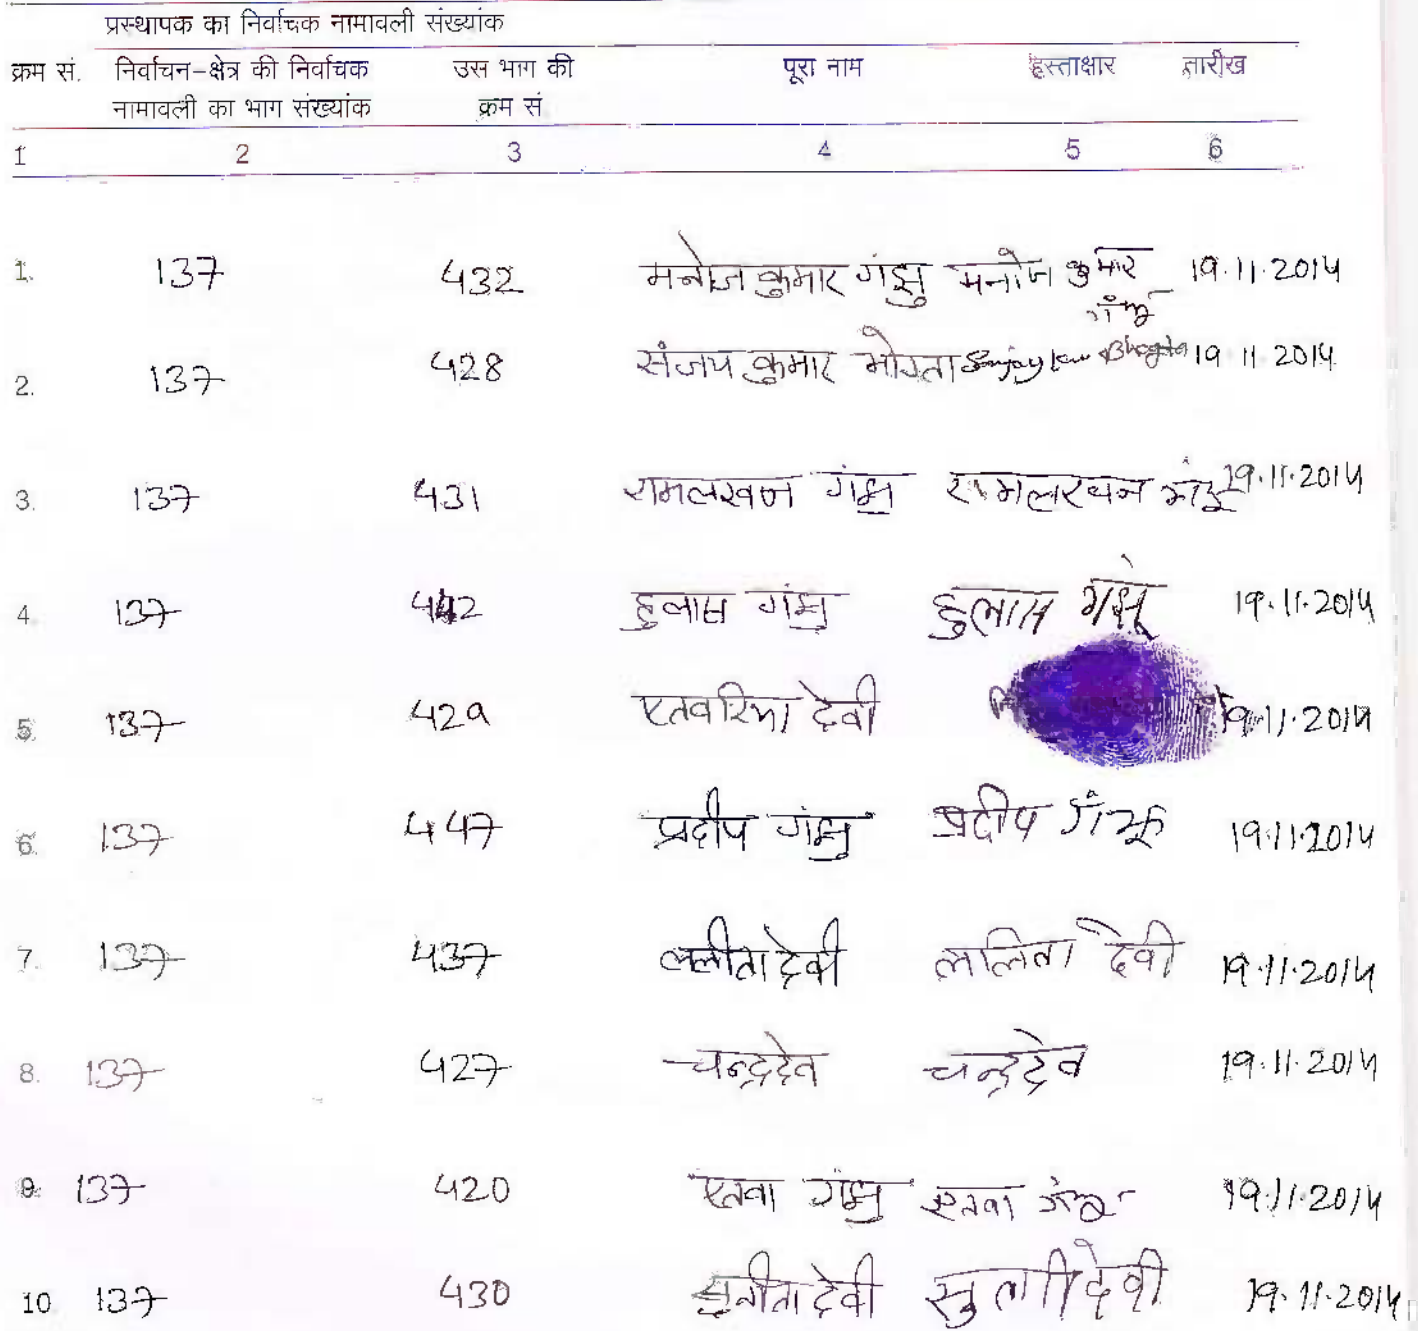 प्रस्थापक का निर्वाचक नामावली संख्यांक
क्रम सं. निर्वाचन-क्षेत्र की निर्वाचक उस भाग की पूरा नाम हस्ताक्षार तारीख
नामावली का भाग संख्यांक क्रम सं
1 2 3 4 5 6
1. 137 432 मनोज कुमार गंझु मनोज कुमार 19.11.2014
गंझु
2. 137 428 संजय कुमार भोगता Sanjay Bhogta 19 11 2014
3. 137 431 रामलखन गंझु रामलखन गंझु 19.11.2014
4. 137 442 हुलास गंझु हुलास गंझू 19.11.2014
5. 137 429 एतवरिया देवी 19.11.2014
6. 137 447 प्रदीप गंझु प्रदीप गंझू 19.11.2014
7. 137 437 ललीता देवी ललिता देवी 19.11.2014
8. 137 427 चन्द्रदेव चन्द्रदेव 19.11.2014
9. 137 420 एतवा गंझु एतवा गंझु 19.11.2014
10 137 430 सुनीता देवी देवी 19.11.2014